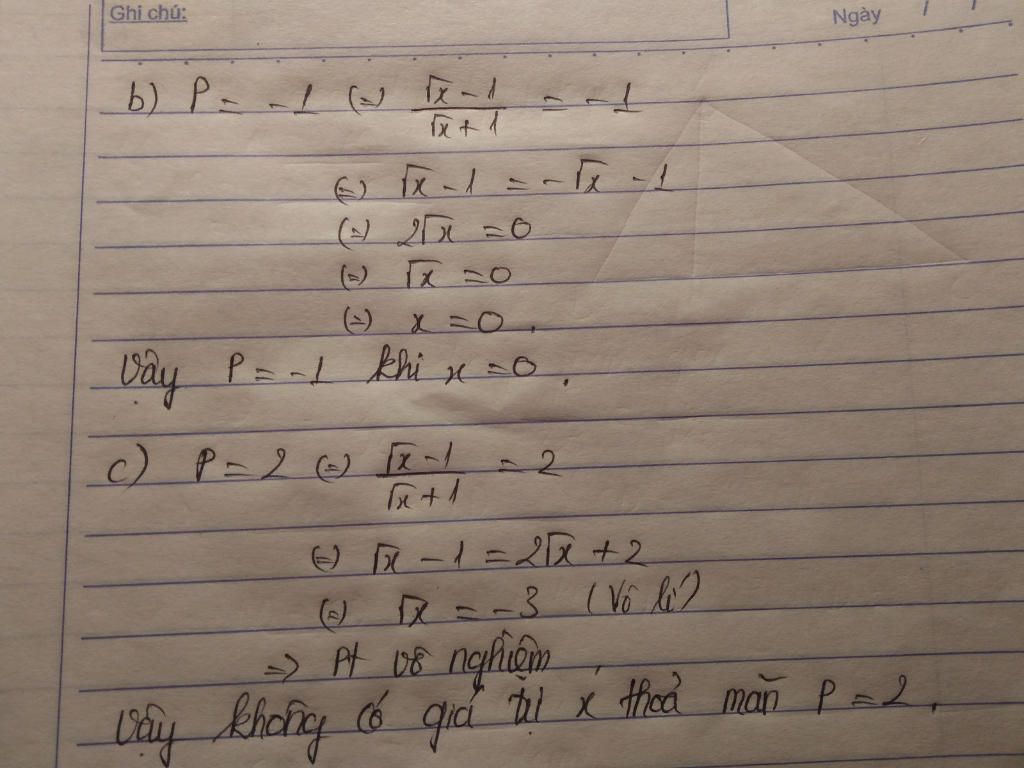 Ghi chú:
Ngày / /
b) P = -1 (=) √x - 1 / √x + 1 = -1
(=) √x - 1 = -√x - 1
(=) 2√x = 0
(=) √x = 0
(=) x = 0.
Vậy P = -1 khi x = 0.
c) P = 2 (=) √x - 1 / √x + 1 = 2
(=) √x - 1 = 2√x + 2
(=) √x = -3 (Vô lí)
=> Pt vô nghiệm.
Vậy không có giá trị x thoả mãn P = 2.